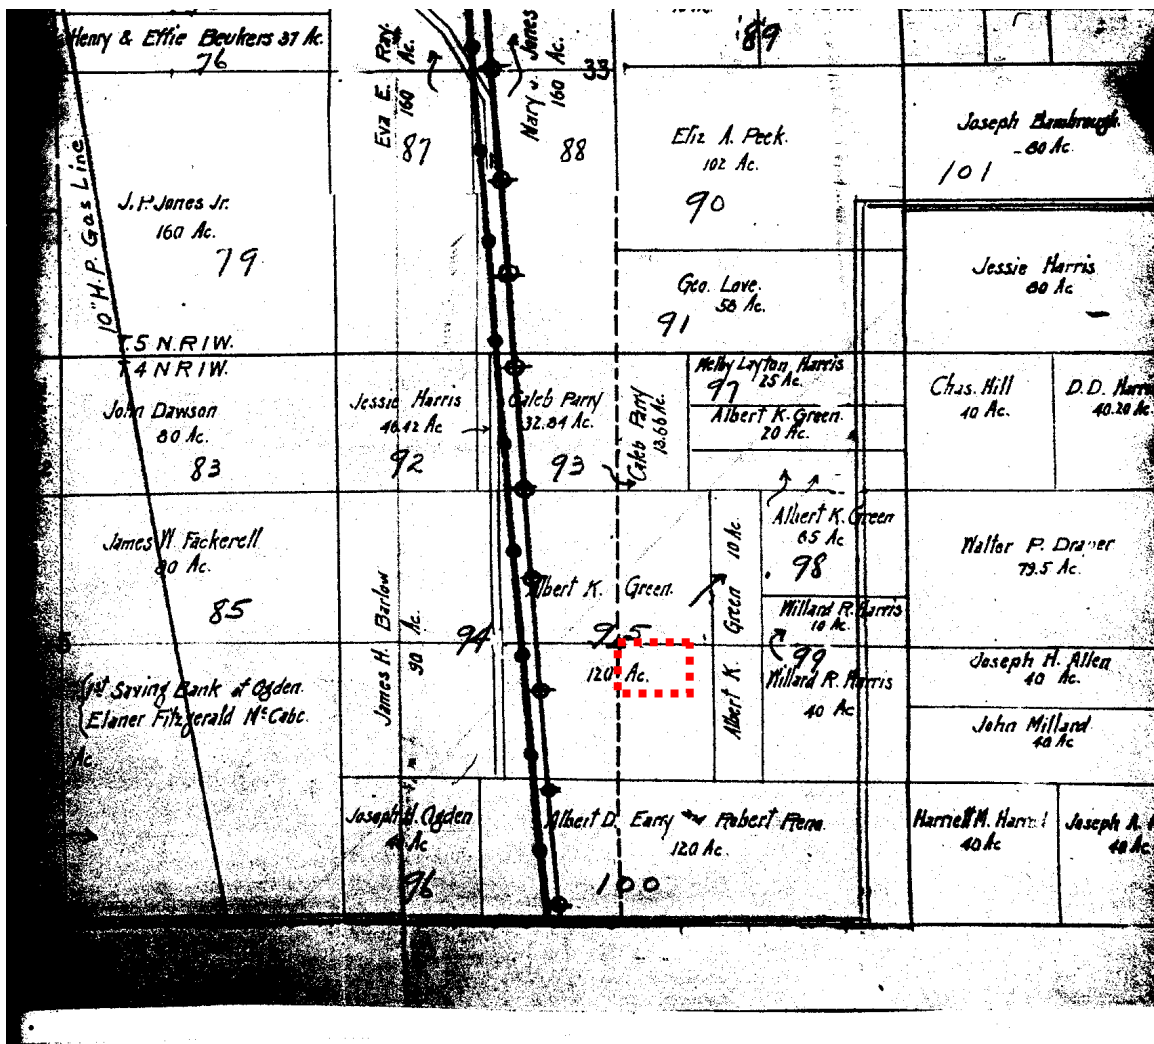 Henry & Effie Beukers 37 Ac.
76
Eva E. Ray.
160 Ac.
87
Mary J. Jones
160 Ac.
88
33
89
Eliz A. Peek.
102 Ac.
90
Joseph Bambrough.
80 Ac.
101
10" H.P. Gas Line
J. P. Jones Jr.
160 Ac.
79
Geo. Love.
58 Ac.
91
Jessie Harris
80 Ac
T.5 N.R1W.
T4 N R1W.
John Dawson
80 Ac.
83
Jessie Harris
46.42 Ac
92
Caleb Parry
32.84 Ac.
93
Caleb Parry
13.66 Ac.
Layton Harris
25 Ac.
97
Albert K. Green.
20 Ac.
Chas. Hill
40 Ac.
D.D.
40.20 Ac
James W. Fackerell
80 Ac.
85
James H. Barlow
90 Ac.
94
Albert K. Green.
95
120 Ac.
Albert K. Green 10 Ac.
Albert K. Green
65 Ac
98
Willard R. Harris
10 Ac
99
Willard R. Harris
40 Ac
Walter P. Draper
79.5 Ac.
Joseph H. Allen
40 Ac.
John Millard
40 Ac
1st Saving Bank of Ogden.
Elaner Fitzgerald McCabe.
Ac.
Joseph H. Ogden
40 Ac
96
Albert D. Earry and Robert Rena.
120 Ac.
100
Harriett M.
40 Ac
Joseph A.
40 Ac